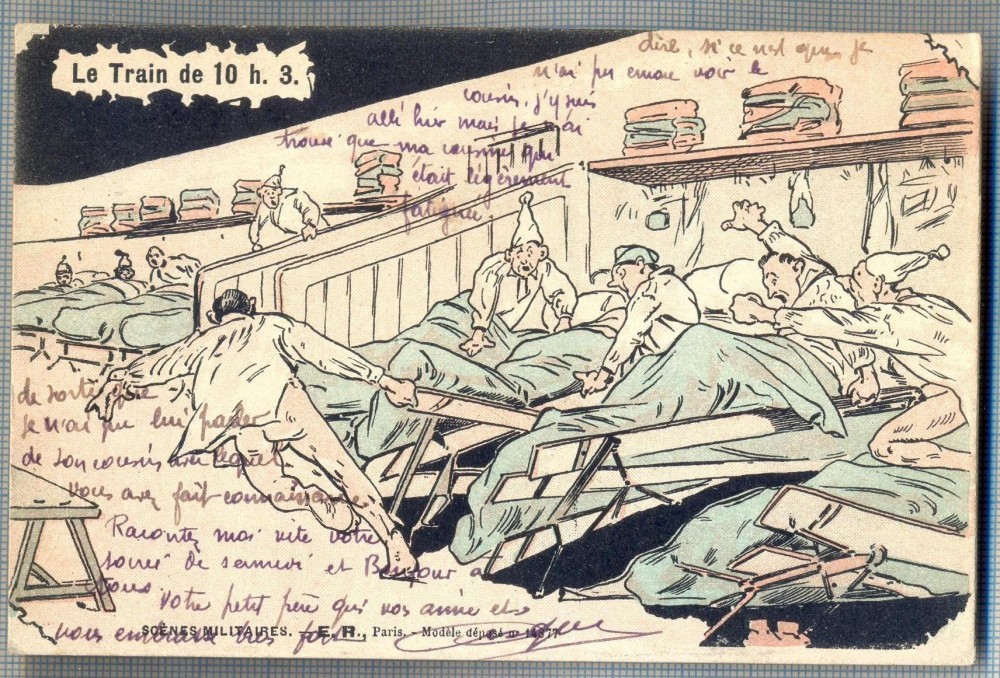 Le Train de 10 h. 3.
dire, si ce n'est que je
n'ai pu encore voir le
cousin, j'y suis
allé hier mais je n'ai
trouvé que ma cousine qui
était légèrement
fatiguée.
de sorte que
je n'ai pu lui parler
de son cousin avec lequel
vous avez fait connaissance
Racontez moi vite votre
soirée de samedi et Bonjour à
tous.
Votre petit père qui vos aime et
vous embrasse bien fort
SCÈNES MILITAIRES. - E. R., Paris. - Modèle déposé n° 14877